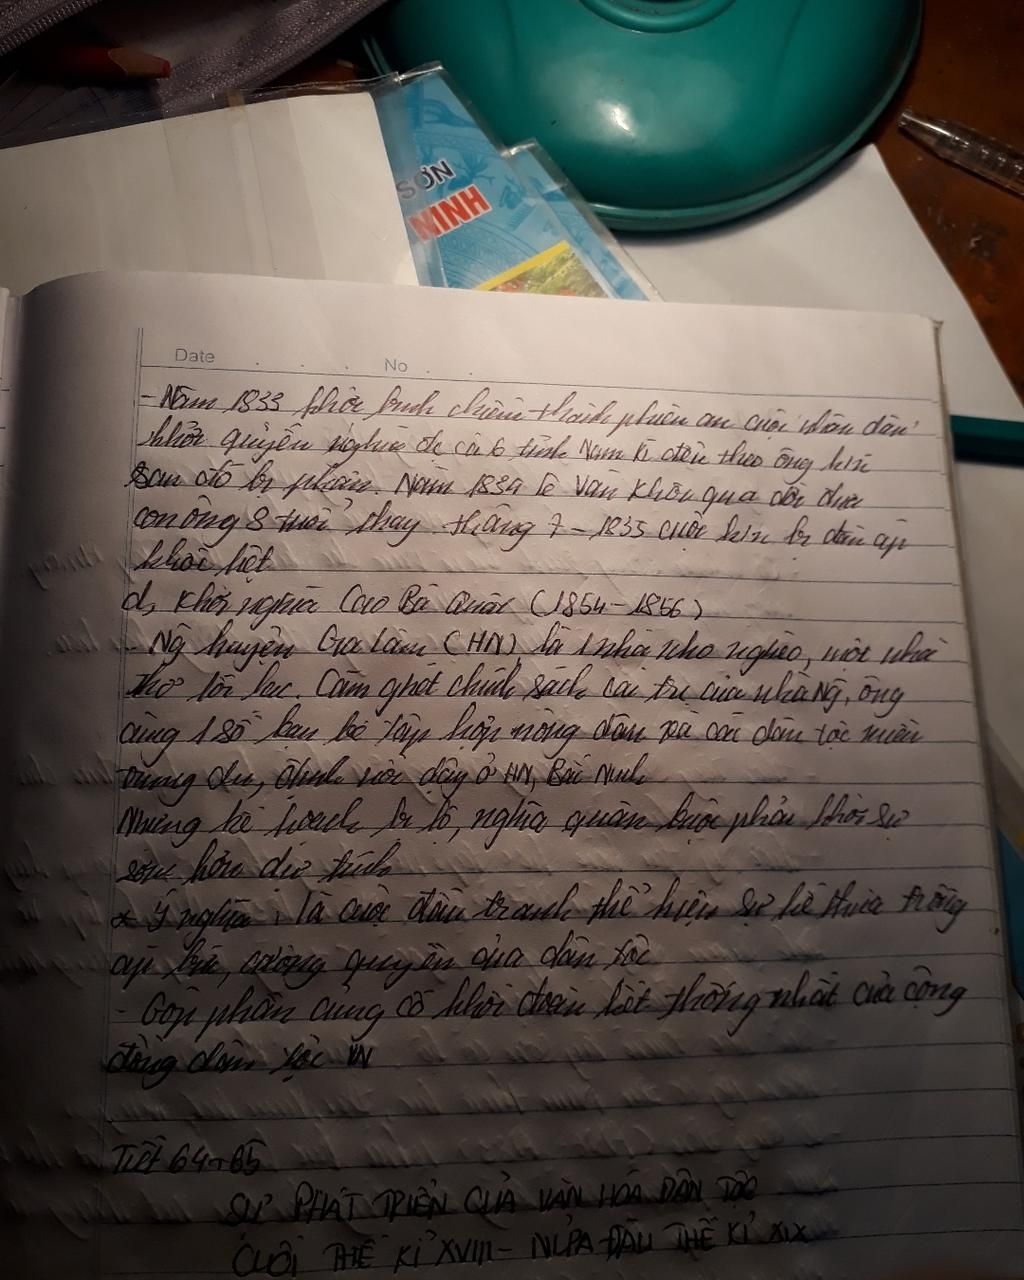 SƠN
NINH
Date . . . . No . . .
- Năm 1833 khởi binh chiếm thành phiên an cuộc nhân dân
khởi quyền nghĩa cả 6 tỉnh Nam Kì đều theo ông
Sau đó bị phản. Năm 1834 lê Văn Khôi qua đời đưa
con ông 8 tuổi thay. tháng 7 - 1835 cuộc k/n bị đàn áp
khốc liệt
d, Khởi nghĩa Cao Bá Quát (1854 - 1856)
- Ng huyện Gia Lâm (HN) là 1 nhà nho nghèo, một nhà
thơ lỗi lạc. Căm ghét chính sách cai trị của nhà Ng, ông
cùng 1 số bạn bè tập hợp nông dân và các dân tộc miền
trung du, định nổi dậy ở HN, Bắc Ninh
Nhưng kế hoạch bị lộ, nghĩa quân buộc phải khởi sự
sớm hơn dự tính
* Ý nghĩa: là cuộc đấu tranh thể hiện sự kế thừa trống
áp bức, cường quyền của dân tộc
- Góp phần củng cố khối đoàn kết thống nhất của cộng
đồng dân tộc VN
Tiết 64+65
SỰ PHÁT TRIỂN CỦA VĂN HÓA DÂN TỘC
CUỐI THẾ KỈ XVIII - NỬA ĐẦU THẾ KỈ XIX